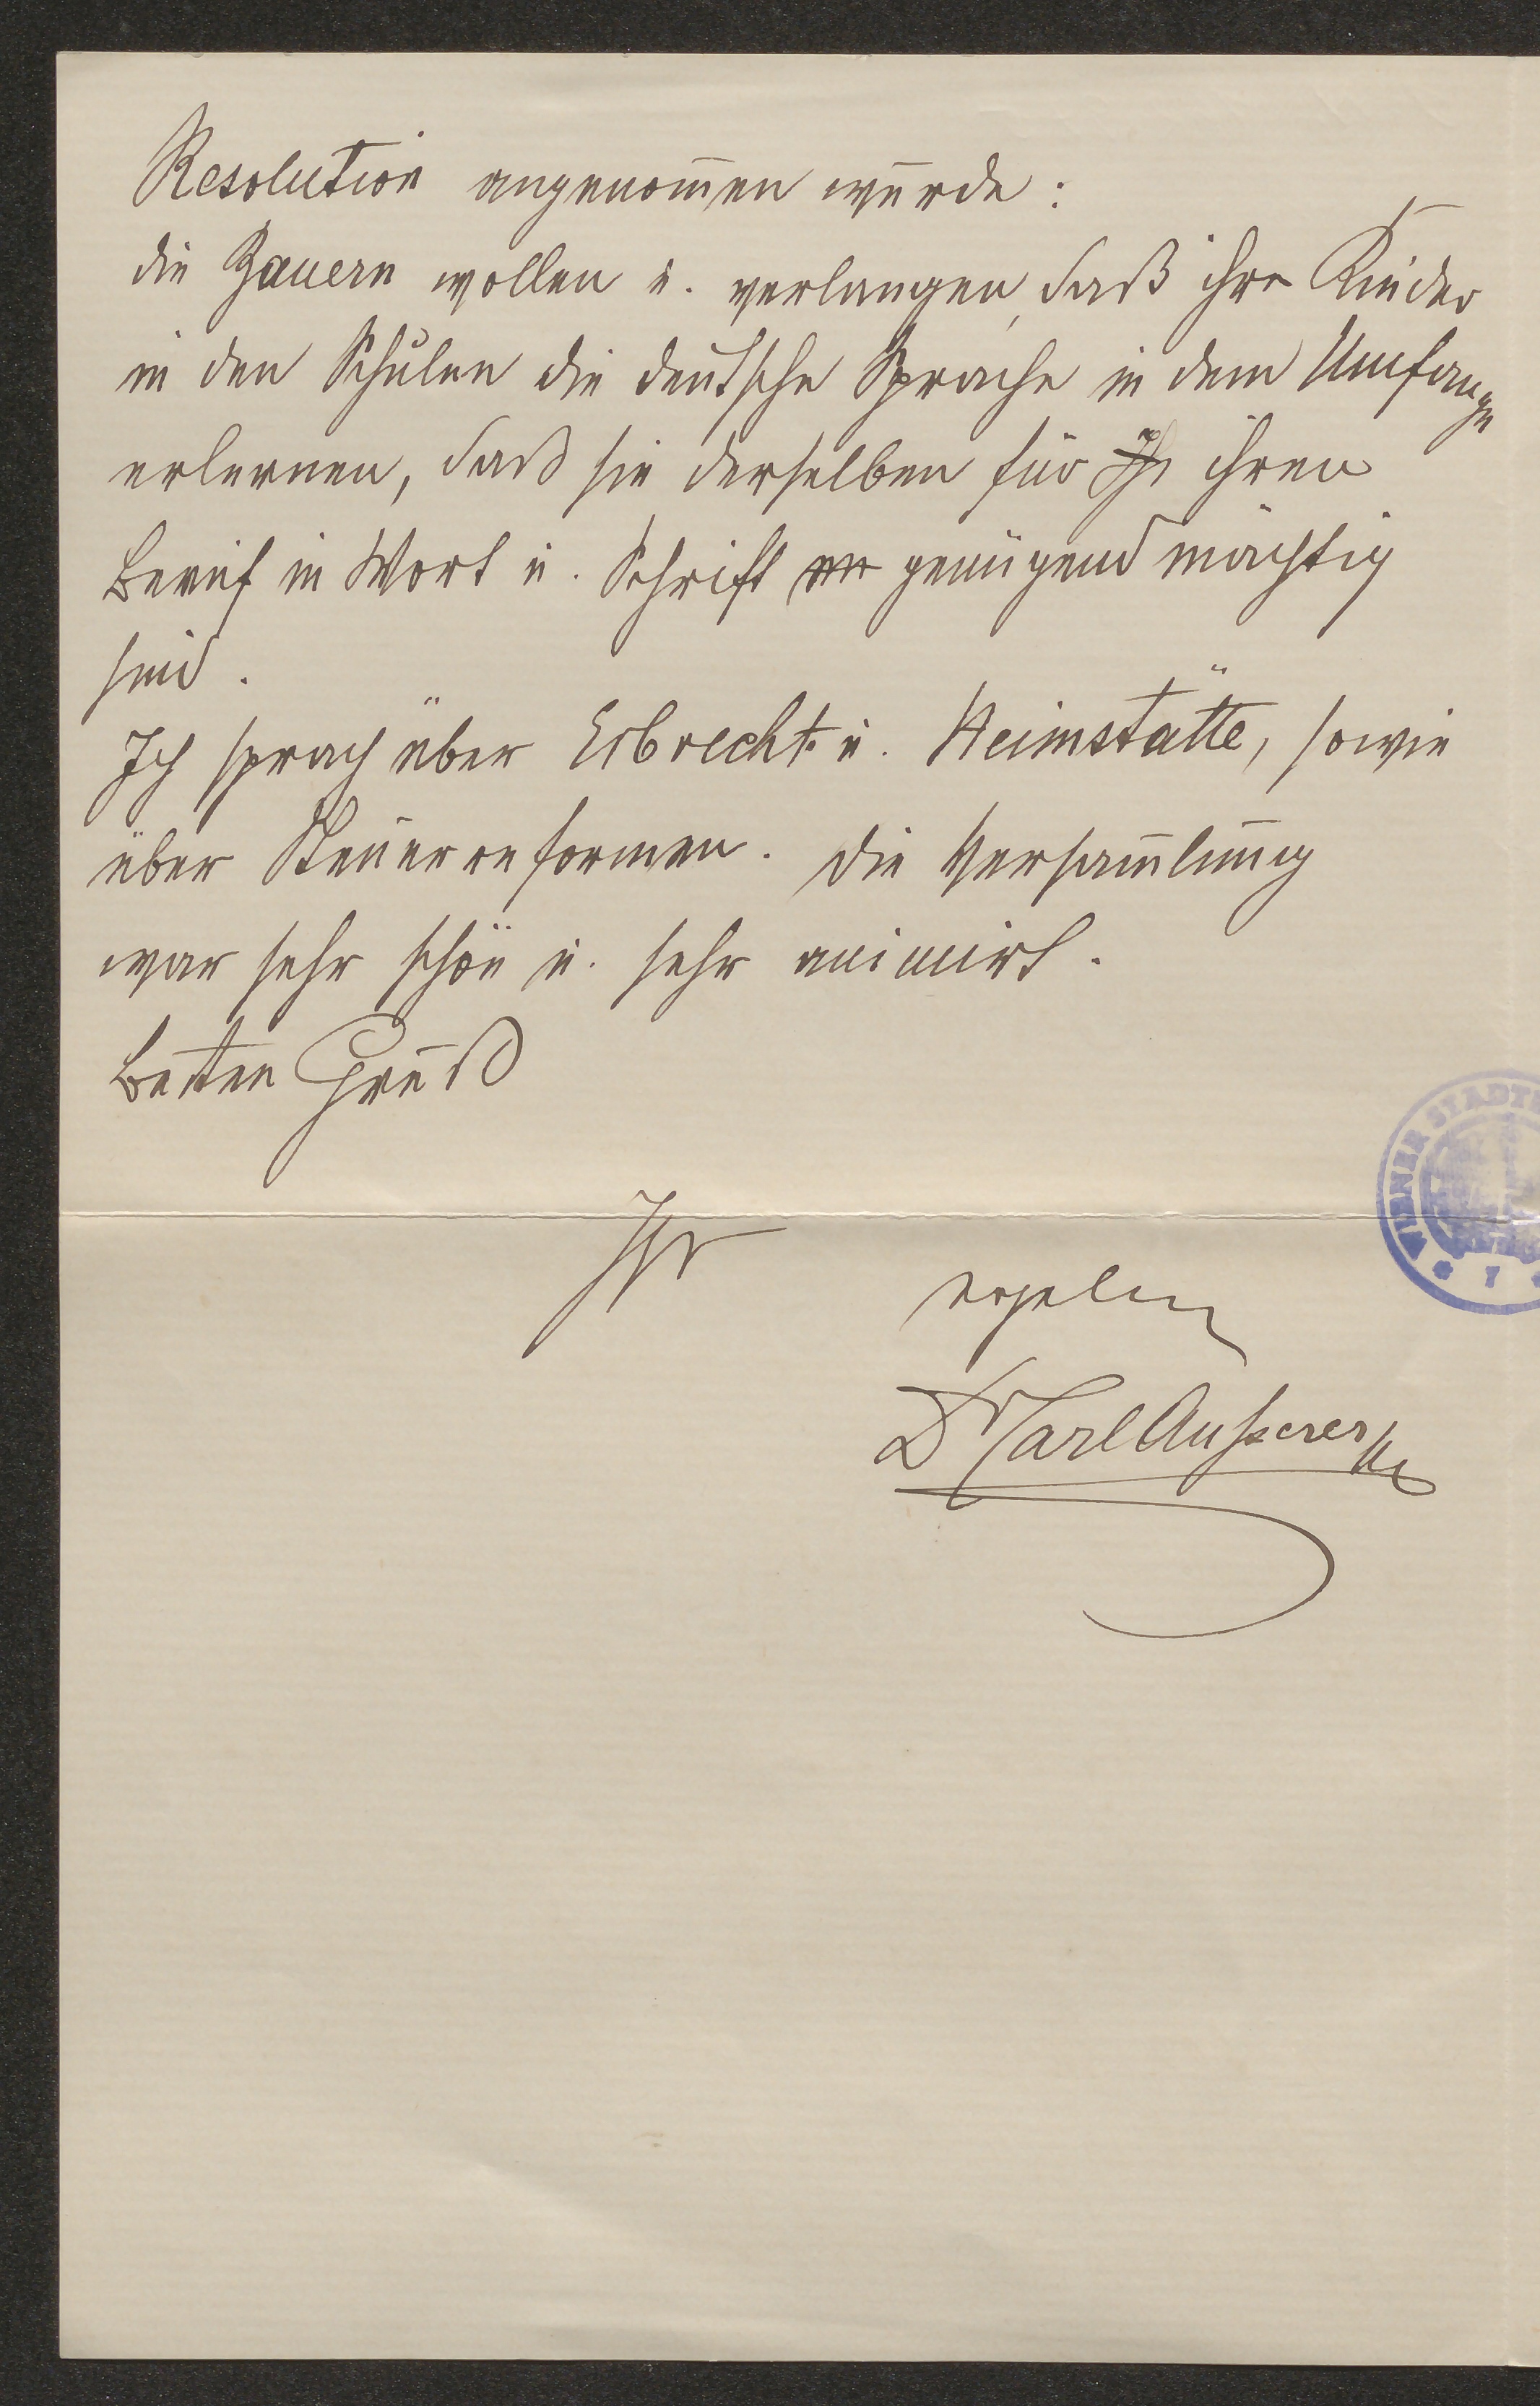 Resolution angenom̅en wurde:
die Bauern wollen u. verlangen, daß ihre Kinder
in den Schulen die deutsche Sprache in dem Umfange
erlernen, daß sie derselben für Ih ihren
Beruf in Wort u. Schrift genügend mächtig
sind.
Ich sprach über Erbrecht u. Heimstätte, sowie
über Steuerreformen. Die Versam̅lung
war sehr schön u. sehr animirt.
Besten Gruß
Ihr
ergebenst
Dr Carl Ausserer
WIENER STADT
* 7 *